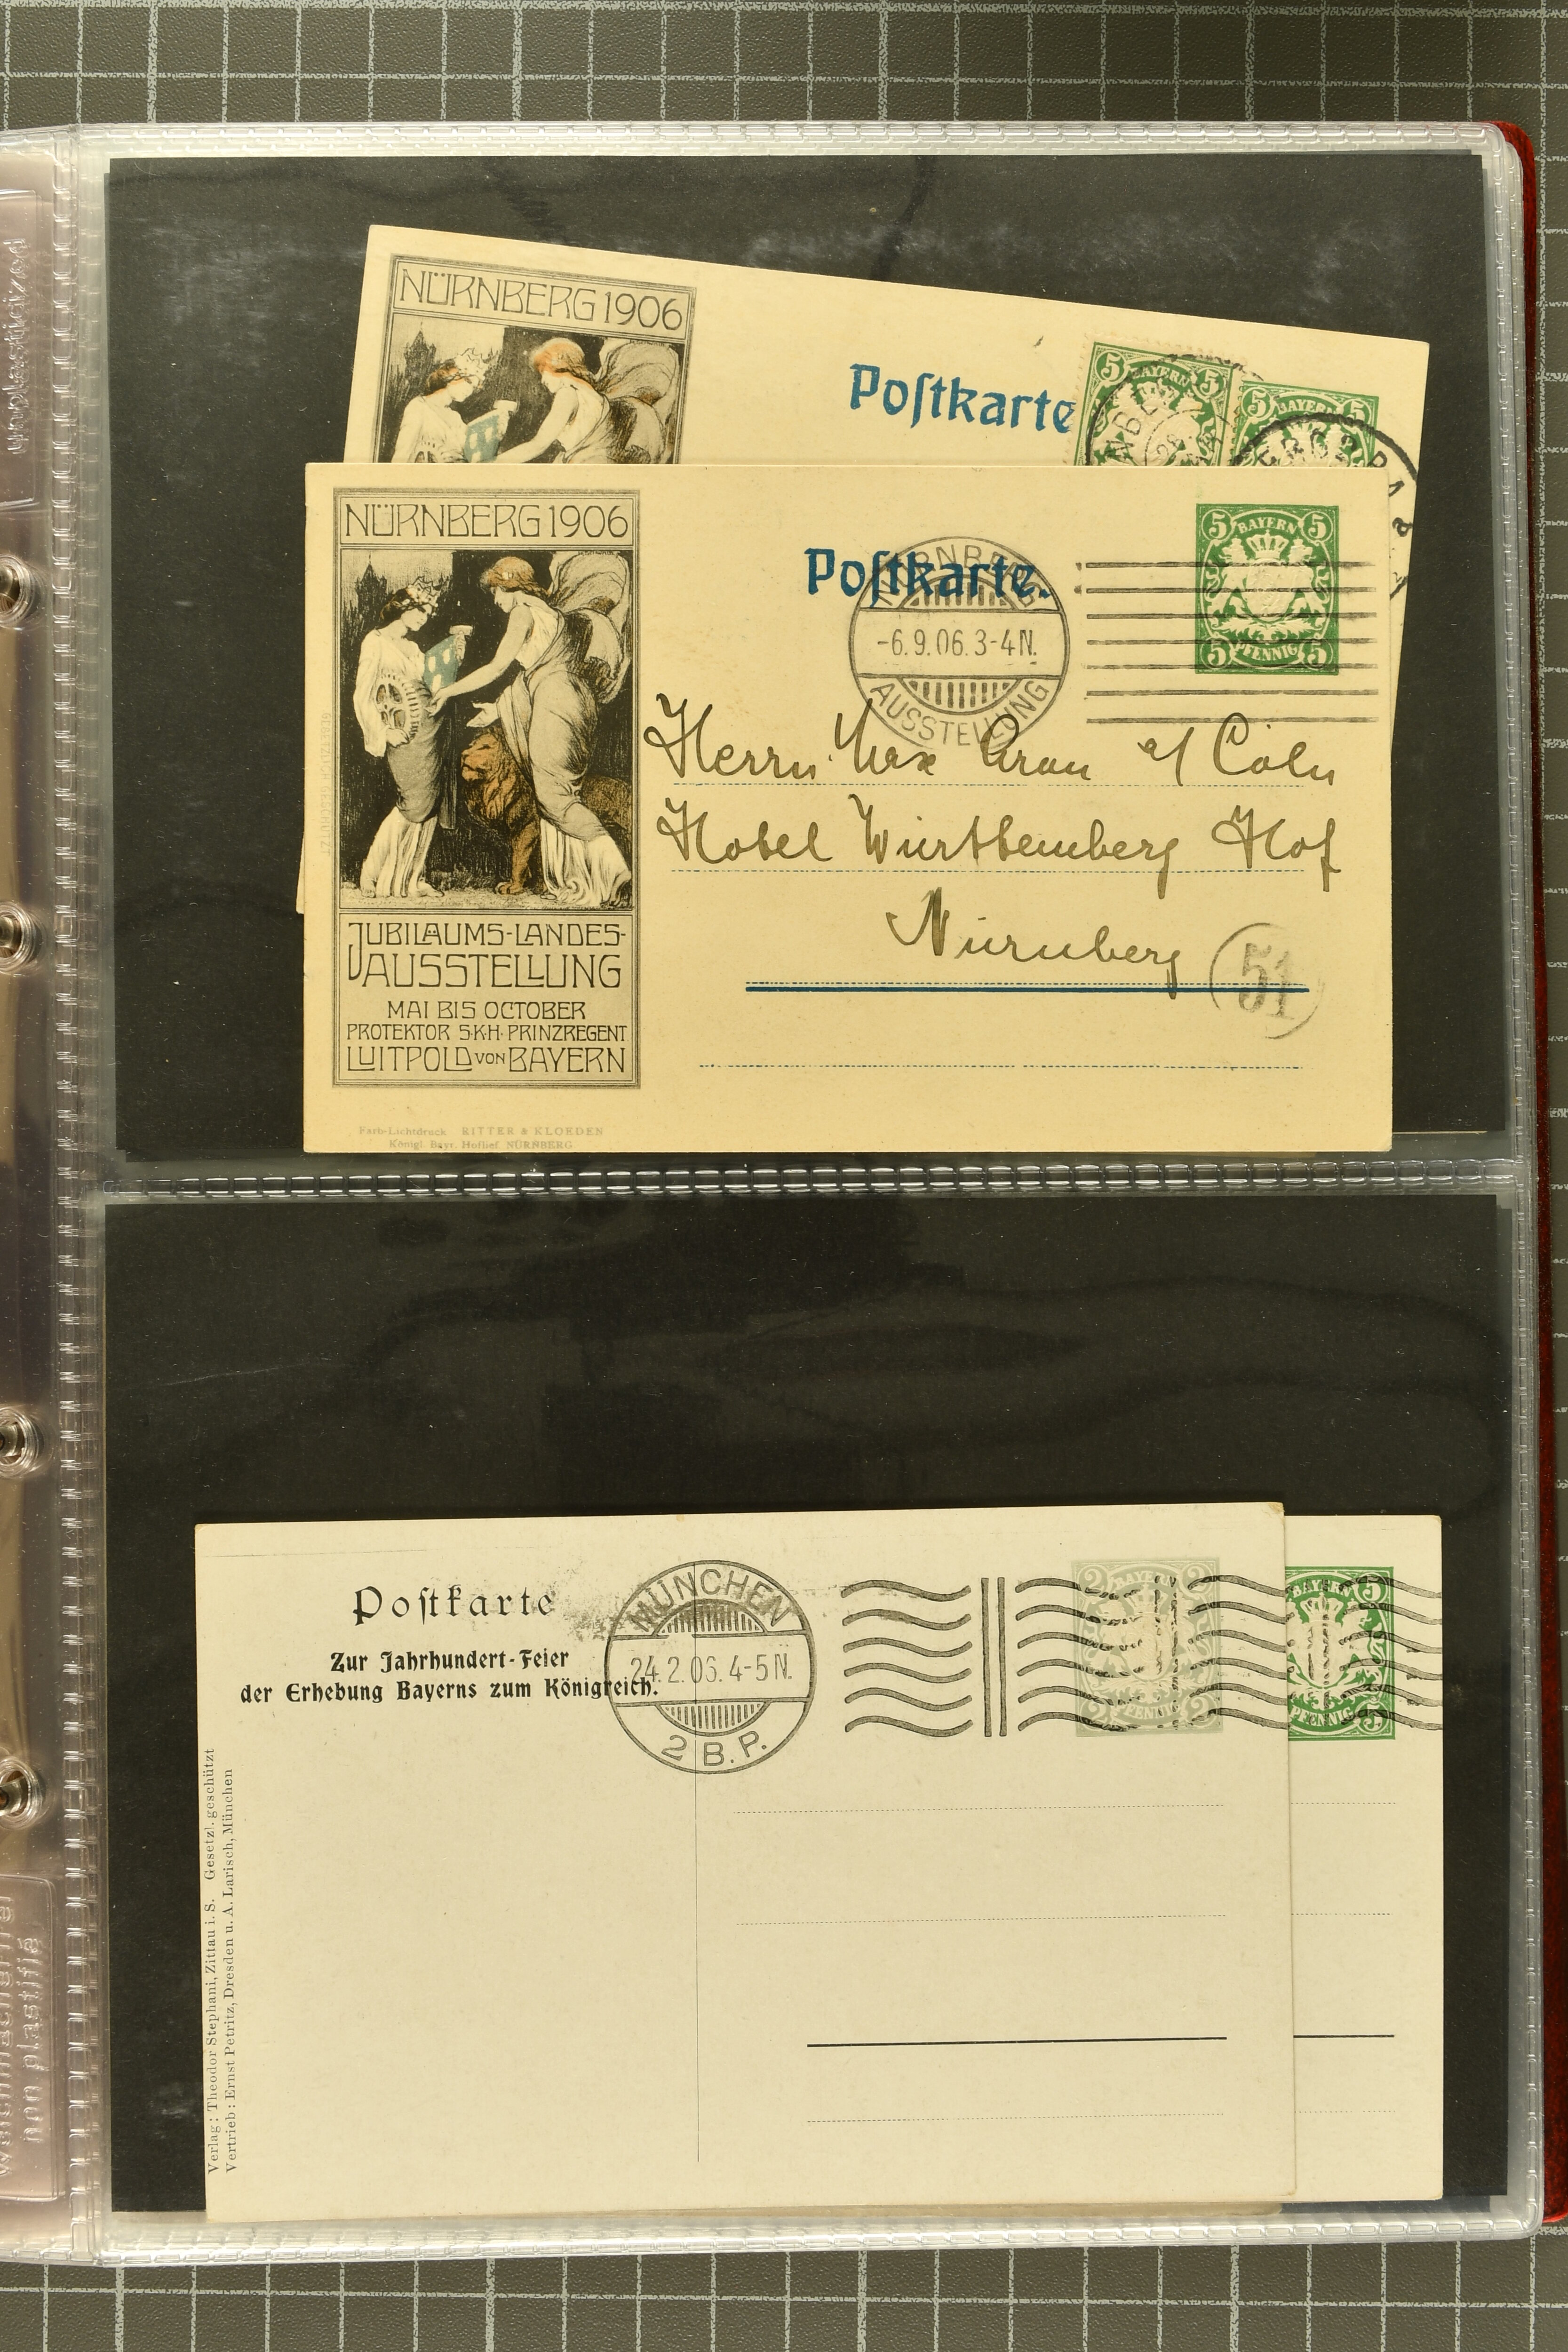 NÜRNBERG 1906
Postkarte
5 BAYERN 5
5 BAYERN 5
NÜRNBERG 1906
Postkarte.
NÜRNBERG
-6.9.06.3-4N.
AUSSTELLUNG
5 BAYERN 5
5 PFENNIG 5
Herrn Max Grau a/ Cöln
Hotel Württemberg Hof
Nürnberg
51
JUBILÄUMS-LANDES-
AUSSTELLUNG
MAI BIS OCTOBER
PROTEKTOR S·K·H· PRINZREGENT
LUITPOLD VON BAYERN
Farb-Lichtdruck RITTER & KLOEDEN
Königl. Bayr. Hoflief. NÜRNBERG
Postkarte
Zur Jahrhundert-Feier
der Erhebung Bayerns zum Königreich.
MÜNCHEN
24.2.06.4-5N.
2 B.P.
2 BAYERN 2
2 PFENNIG 2
BAYERN 5
PFENNIG 5
Verlag: Theodor Stephani, Zittau i. S. Gesetzl. geschützt
Vertrieb: Ernst Petritz, Dresden u. A. Larisch, München
non plastifié